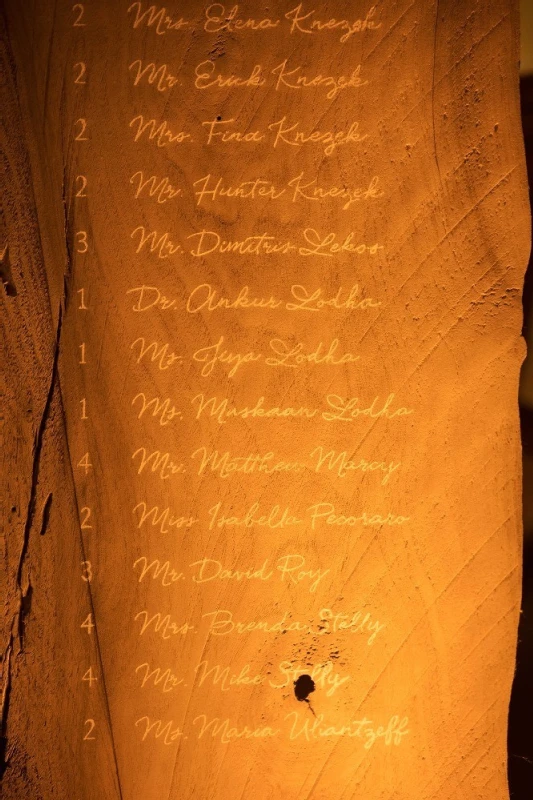 2 Mrs. Elena Knezek
2 Mr. Erick Knezek
2 Mrs. Fina Knezek
2 Mr. Hunter Knezek
3 Mr. Dimitris Lekos
1 Dr. Ankur Lodha
1 Ms. Jiya Lodha
1 Ms. Muskaan Lodha
4 Mr. Matthew Marcy
2 Miss Isabella Pecoraro
3 Mr. David Roy
4 Mrs. Brenda Stally
4 Mr. Mike Stally
2 Ms. Maria Uliantzeff